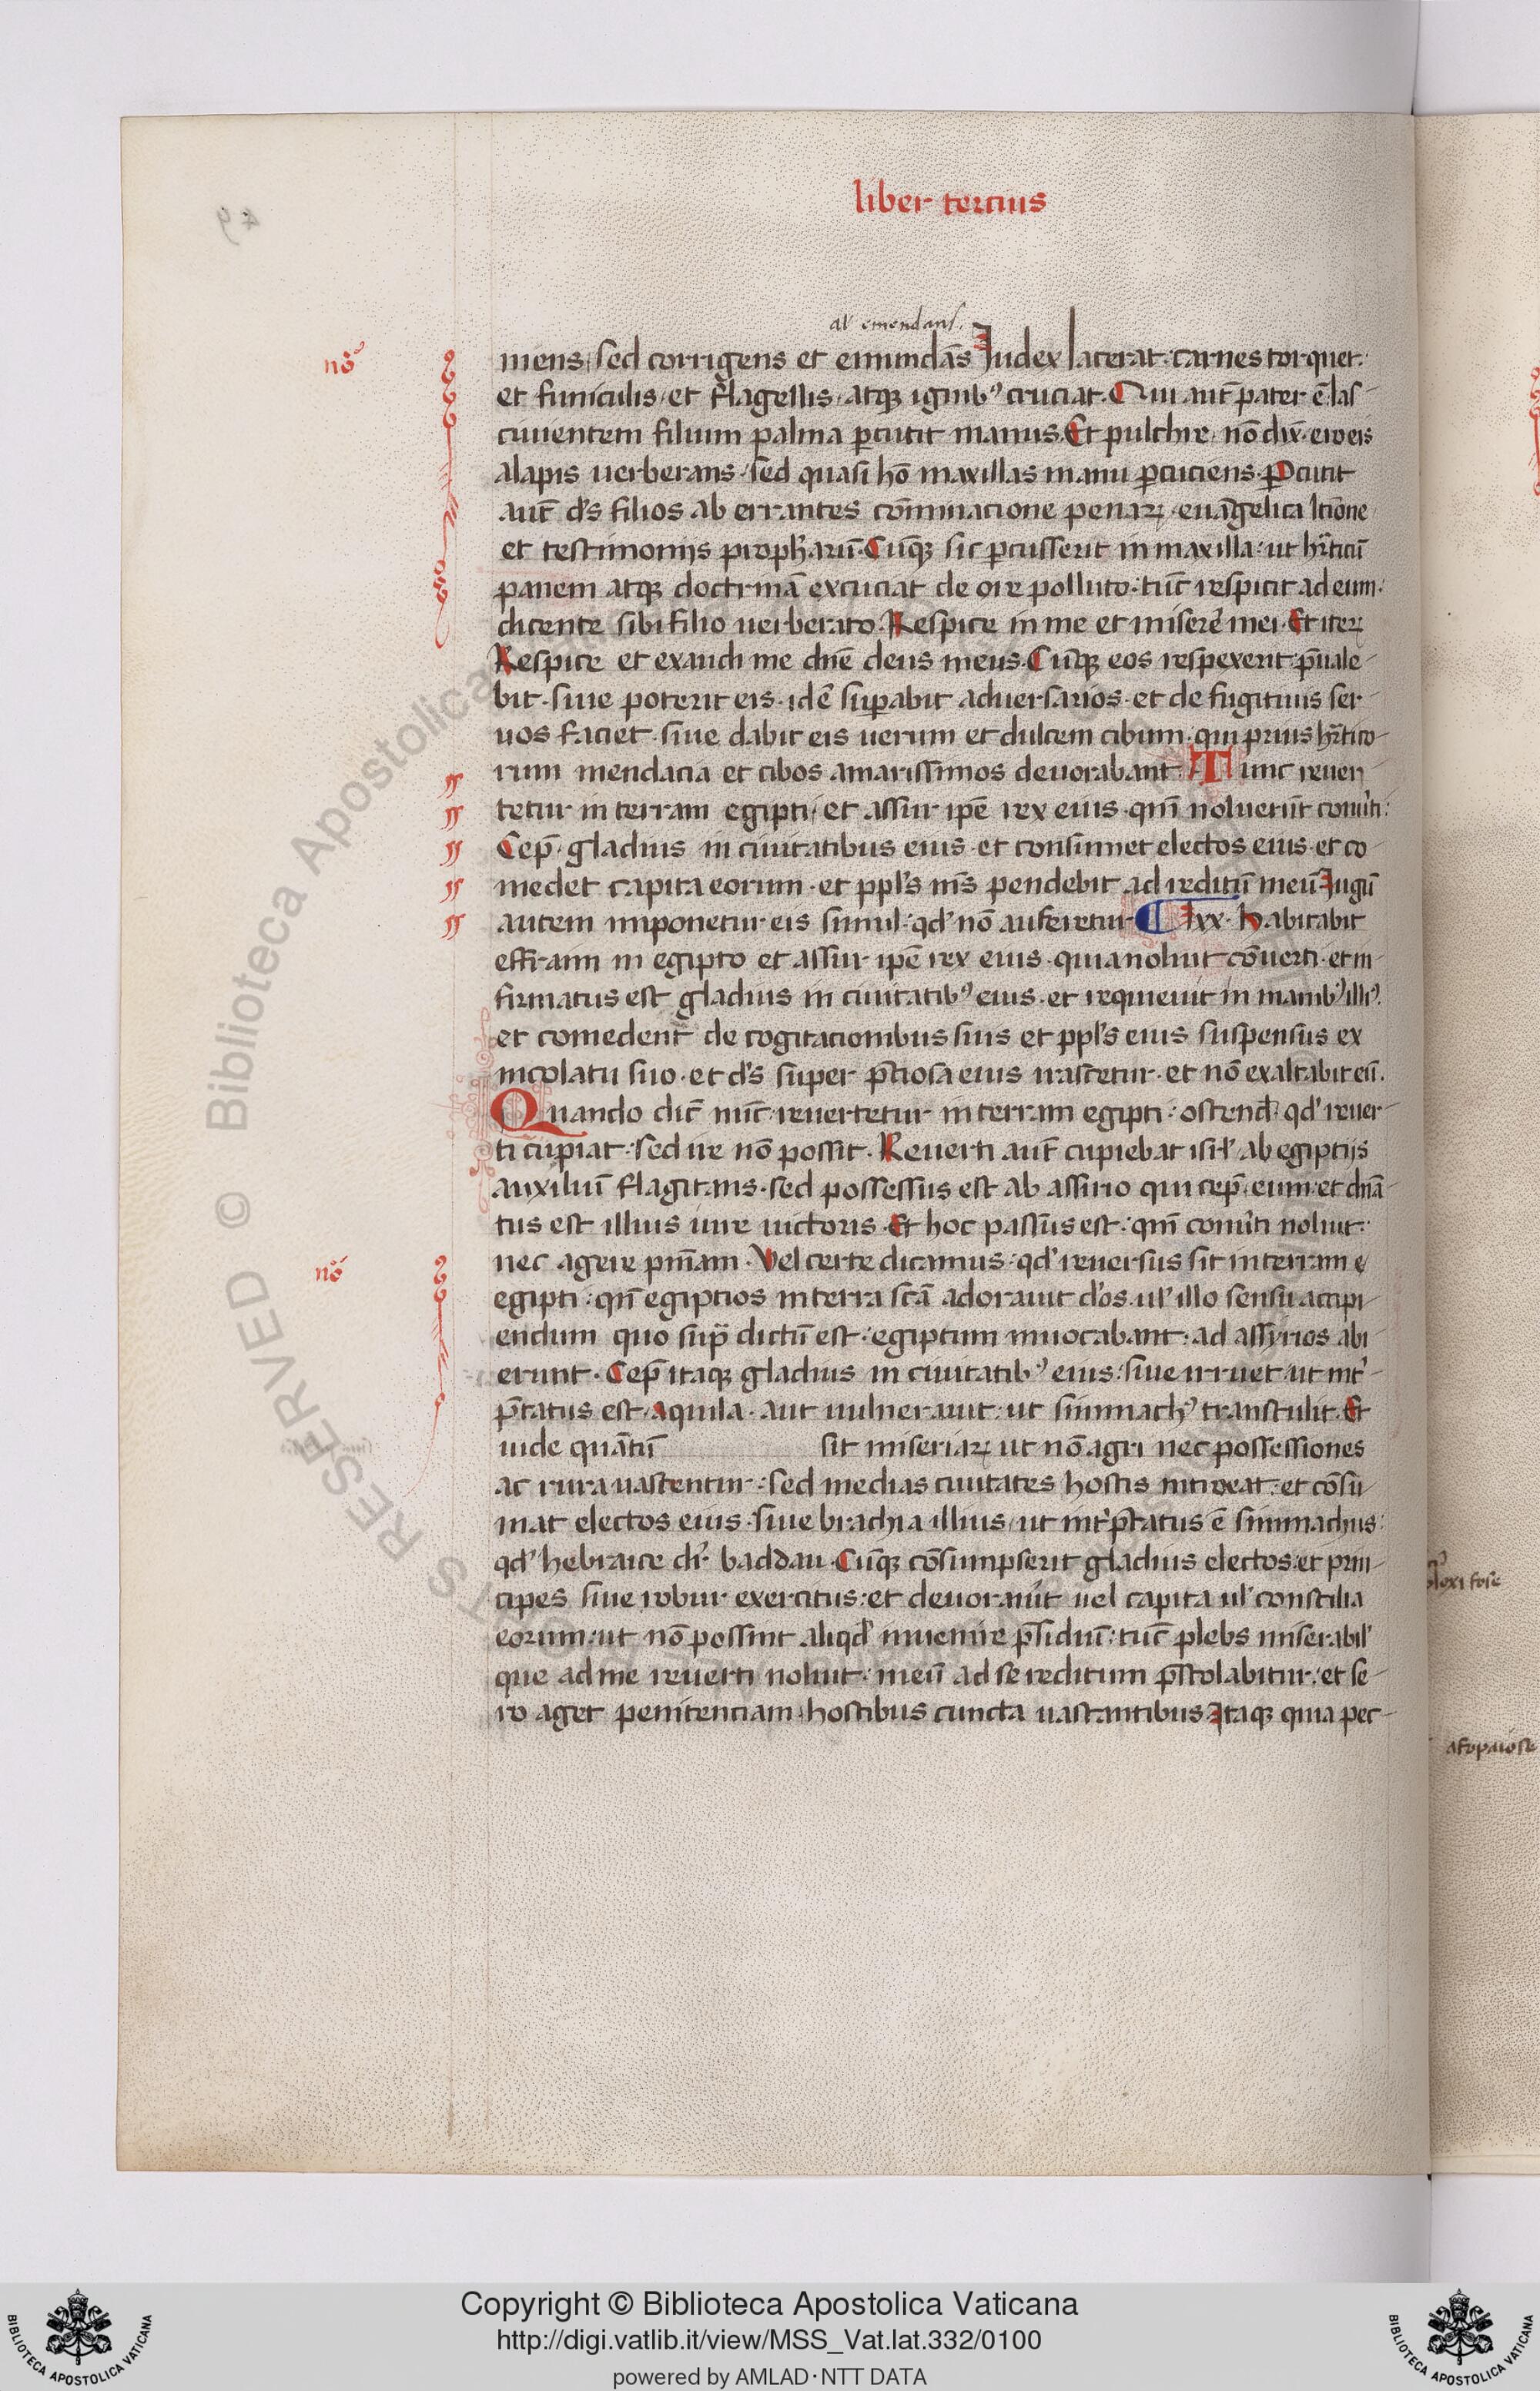 liber tercius
al' emendans.
no͂
mens, sed corrigens et emundās Iudex lacerat. carnes torquet.
et funiculis, et flagellis, atqꝫ ignibꝰ cruciat. Qui aut̄ pater ē. las-
ciuientem filium palma ꝑcutit manus. Et pulchre, nō dix̄. ero eis
alapis uerberans, sed quasi hō maxillas manu ꝑcuciens. Ꝑcutit
aut̄ d's filios ab errantes cōminacione penaꝝ, euāgelica lc̄ione
et testimonijs proph'arū. Cūqꝫ sic ꝑcusserit in maxilla: ut hr̄ticū
panem atqꝫ doctrinā excuciat de ore polluto: tūc respicit ad eum.
dicente sibi filio uerberato. Respice in me et misere' mei. Et iteꝝ
Respice et exaudi me dn̄e deus meus. Cūqꝫ eos respexerit: p̄uale-
bit. siue poterit eis. idē suꝑabit aduersarios. et de fugitiuis ser-
uos faciet. siue dabit eis uerum et dulcem cibum. qui prius hr̄tico-
rum mendacia et cibos amarissimos deuorabant. Tunc reuer-
tetur in terram egipti, et assur ip̄e rex eius. qm̄ noluerūt conu'ti:
Cep̄. gladius in ciuitatibus eius. et consumet electos eius. et co-
medet capita eorum. et ppl's m̄s pendebit ad reditū meū. Iugū
autem imponetur eis simul: qd' nō auferetur. ¶ lxx. Habitabit
effraim in egipto et assur ip̄e rex eius. quia noluit cōuerti. et in-
firmatus est gladius in ciuitatibꝰ eius. et requieuit in manibꝰ illiꝰ.
et comedent de cogitacionibus suis et ppl's eius suspensus ex
incolatu suo. et d's super p̄ciosa eius irascetur. et nō exaltabit eū.
Quando dic̄ nūc reuertetur in terram egipti: ostend' qd' reuer-
ti cupiat: sed ire nō possit. Reuerti aut̄ cupiebat isr̄l', ab egiptijs
auxiliū flagitans. sed possessus est ab assirio qui cep̄. eum. et dn̄a-
tus est illius iure uictoris. Et hoc passus est: qm̄ conu'ti noluit:
no͂
nec agere pn̄iam. Vel certe dicamus: qd' reuersus sit in terram e
egipti: qn̄ egiptios in terra sc̄a adorauit d'os. ul' illo sensu accipi-
endum quo sup̄ dictū est: egiptum inuocabant. ad assyrios abi-
erunt. Cep̄ itaqꝫ gladius in ciuitatibꝰ eius: siue irruet, ut int'-
p̄tatus est, aquila. aut uulnerauit: ut simmachꝰ transtulit. Et
uide quātū sit miseriaꝝ ut nō agri nec possessiones
ac rura uastentur: sed medias ciuitates hostis introeat: et cōsu-
mat electos eius. siue brachia illius, ut int'p̄tatus ē simmachus:
qd' hebraice dr̄. baddau. Cūqꝫ cōsumpserit gladius electos: et prin-
cipes siue robur exercitus: et deuorauit uel capita ul' conscilia
eorum: ut nō possint aliqd' inuenire p̄sidiū: tūc plebs miserabil'
que ad me reuerti noluit. meū ad se reditum p̄stolabitur: et se-
ro aget penitenciam, hostibus cuncta uastantibus. Itaqꝫ quia pec-
Copyright © Biblioteca Apostolica Vaticana
http://digi.vatlib.it/view/MSS_Vat.lat.332/0100
powered by AMLAD · NTT DATA